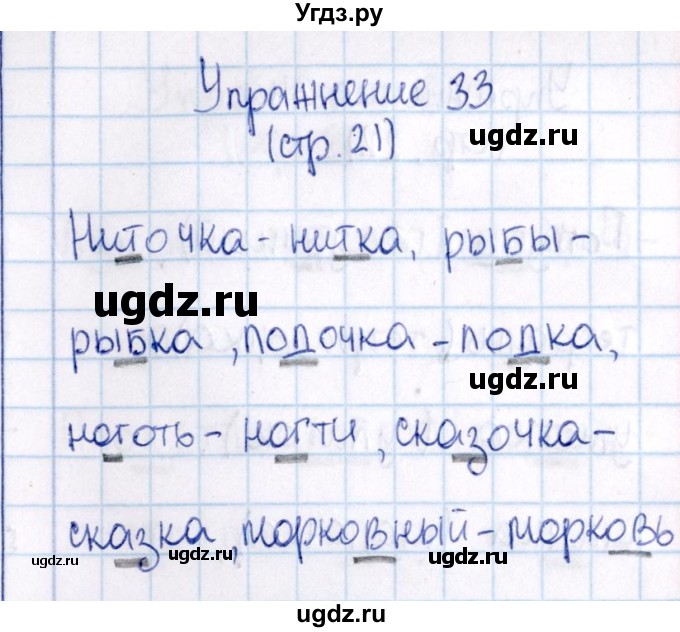 Угдз.ру
Упражнение 33
ugdz.ru
(стр. 21)
Ниточка - нитка, рыбы -
ugdz.ru
рыбка, лодочка - лодка,
ugdz.ru
ноготь - ногти, сказочка -
сказка, морковный - морковь
ugdz.ru ugdz.ru ugdz.ru
ugdz.ru